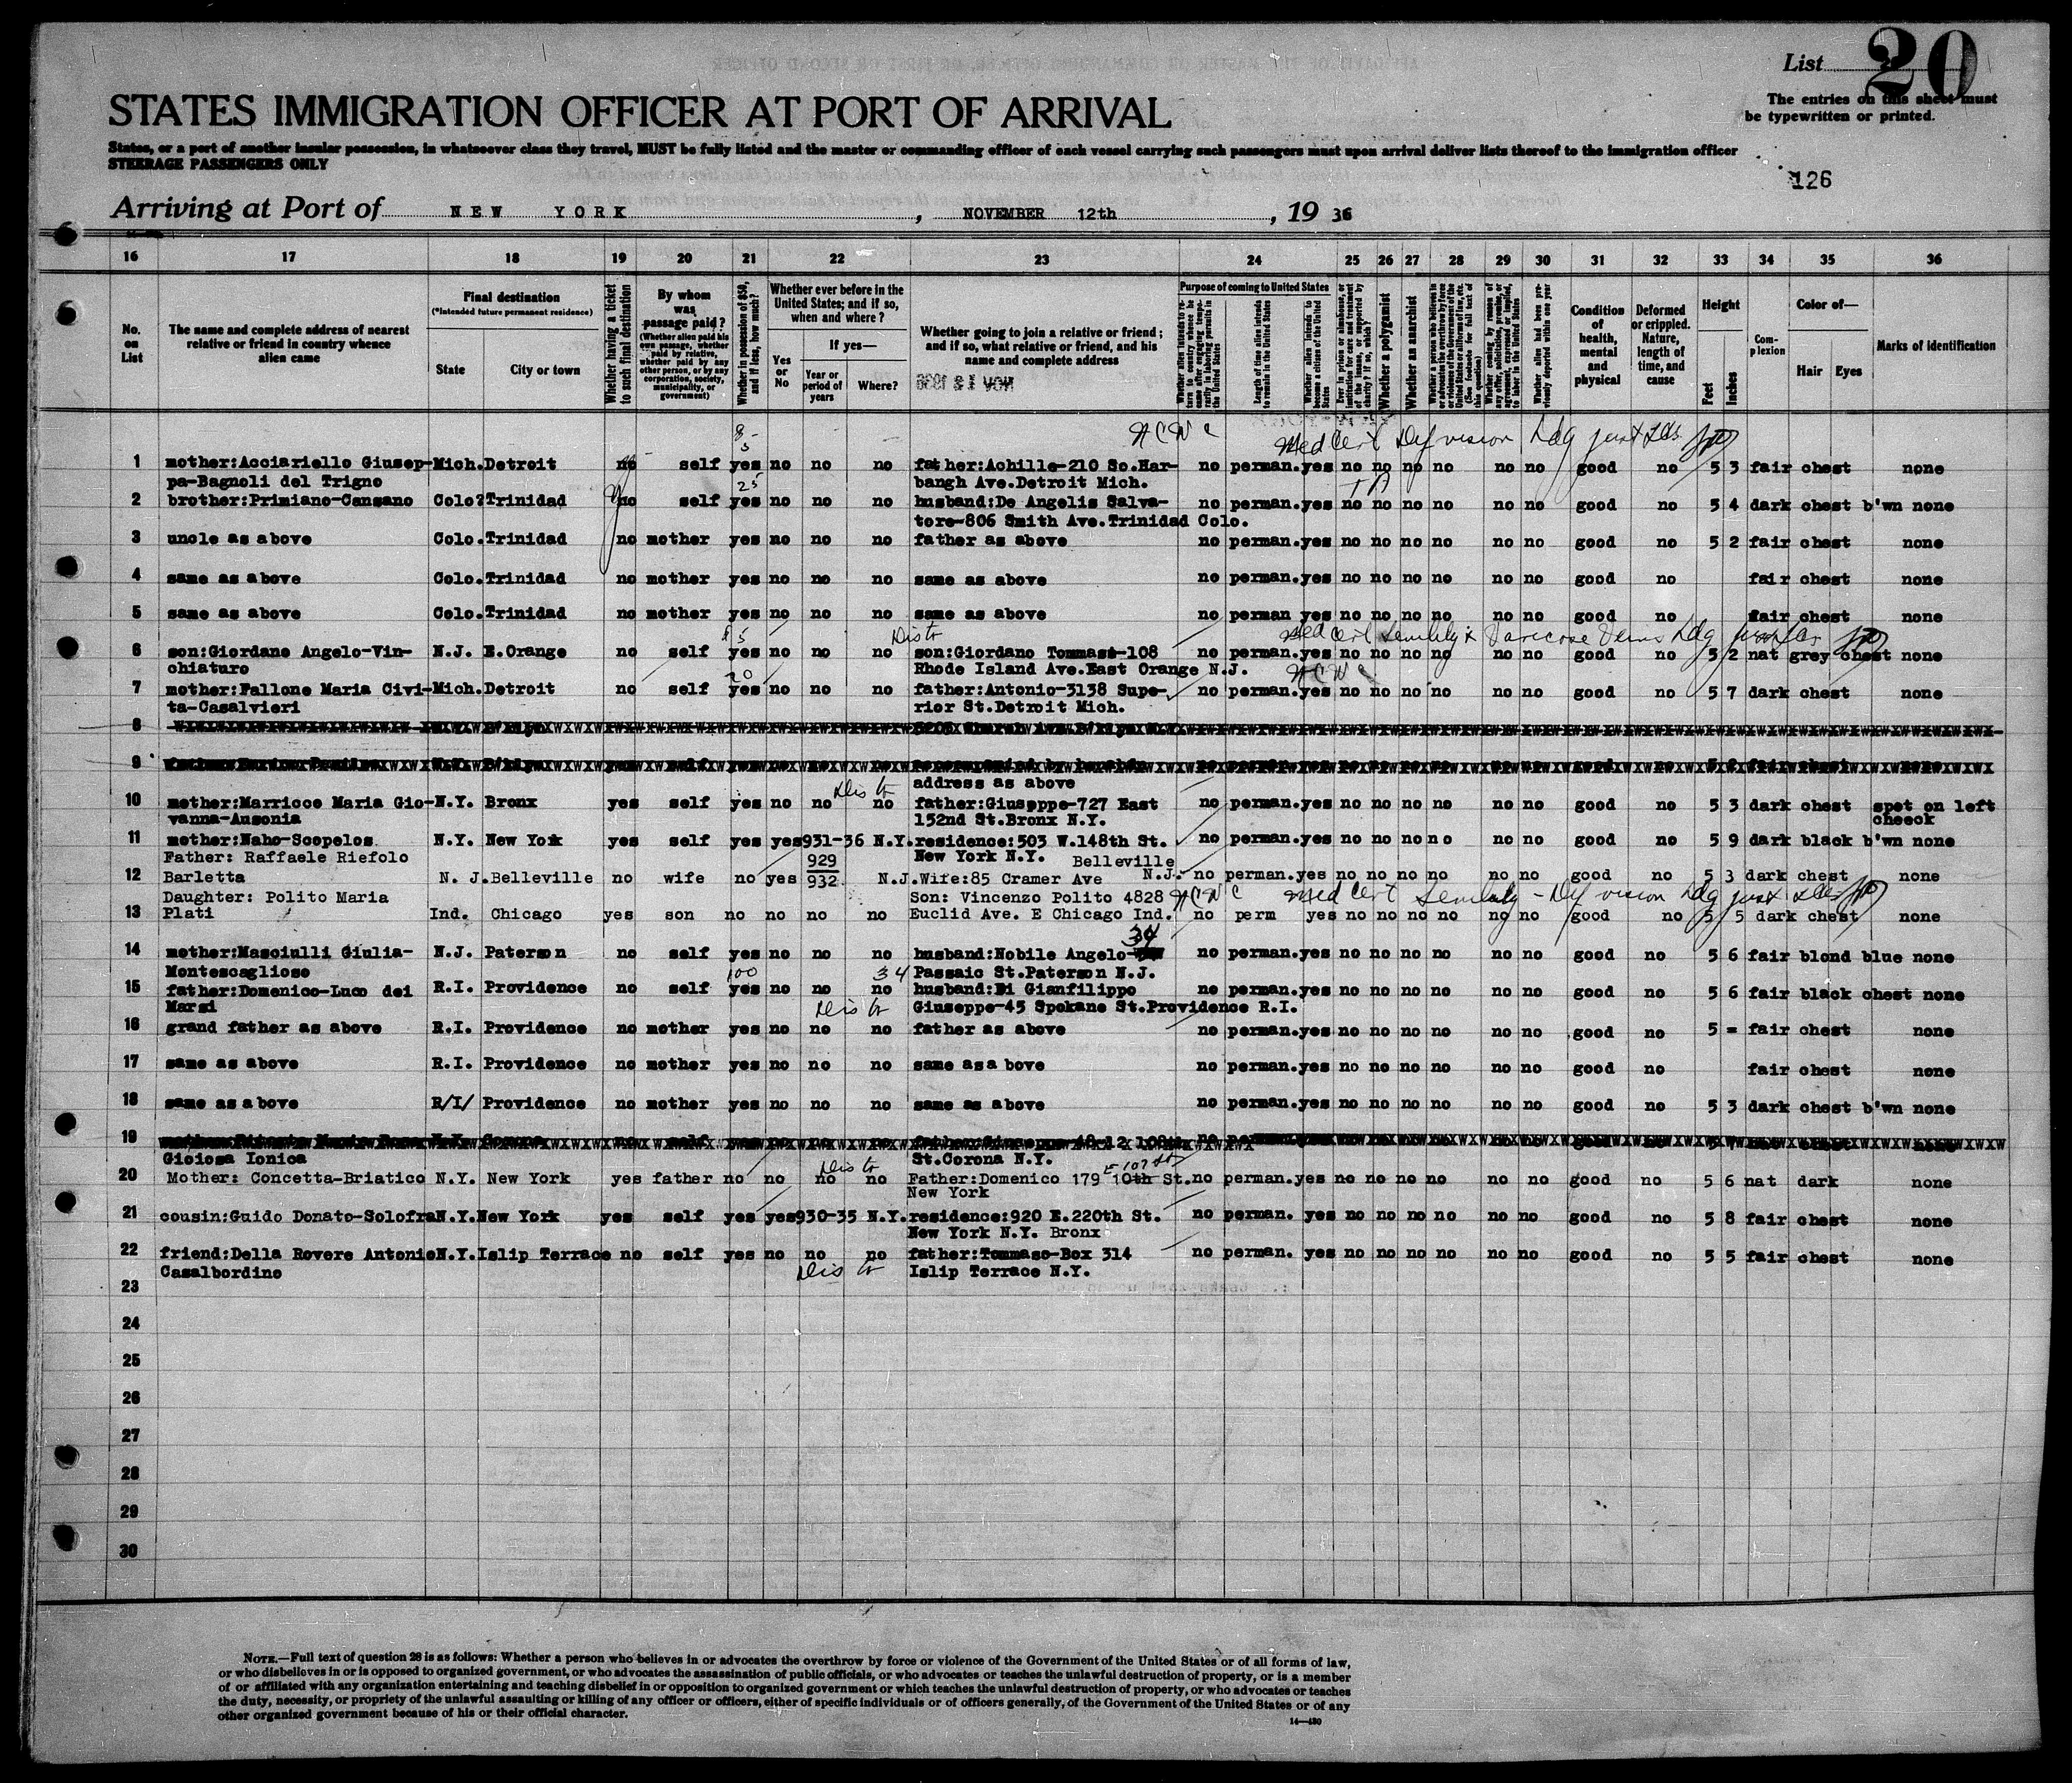 List 20
The entries on this sheet must
be typewritten or printed.
STATES IMMIGRATION OFFICER AT PORT OF ARRIVAL
States, or a port of another insular possession, in whatsoever class they travel, MUST be fully listed and the master or commanding officer of each vessel carrying such passengers must upon arrival deliver lists thereof to the immigration officer
STEERAGE PASSENGERS ONLY
126
Arriving at Port of NEW YORK, NOVEMBER 12th, 19 36
16 17 18 19 20 21 22 23 24 25 26 27 28 29 30 31 32 33 34 35 36
No. on List
The name and complete address of nearest relative or friend in country whence alien came
Final destination
(*Intended future permanent residence)
State
City or town
Whether having a ticket to such final destination
By whom was passage paid?
(Whether alien paid his own passage, whether paid by relative, whether paid by any other person, or by any corporation, society, municipality, or government)
Whether in possession of $50, and if less, how much?
Whether ever before in the United States; and if so, when and where?
Yes or No
If yes—
Year or period of years
Where?
Whether going to join a relative or friend; and if so, what relative or friend, and his name and complete address
Purpose of coming to United States
Length of time alien intends to remain in the United States
Whether alien intends to become a citizen of the United States
Whether a polygamist
Whether an anarchist
Whether alien had been previously deported within one year
Condition of health, mental and physical
Deformed or crippled. Nature, length of time, and cause
Height
Feet
Inches
Complexion
Color of—
Hair Eyes
Marks of identification
Med Cert Def vision Ldg just Lds
1 mother:Acciariello Giusep- Mich. Detroit no self yes no no no father:Achille-210 So.Har- no perman. yes no no no no no no good no 5 3 fair chest none
pa-Bagnoli del Trigno bangh Ave.Detroit Mich.
25
2 brother:Primiano-Cansano Colo? Trinidad no self yes no no no husband:De Angelis Salva- no perman. yes no no no no no no good no 5 4 dark chest b'wn none
tore-806 Smith Ave.Trinidad Colo.
3 uncle as above Colo. Trinidad no mother yes no no no father as above no perman. yes no no no no no no good no 5 2 fair chest none
4 same as above Colo. Trinidad no mother yes no no no same as above no perman. yes no no no no no no good no fair chest none
5 same as above Colo. Trinidad no mother yes no no no same as above no perman yes no no no no no no good no fair chest none
Med Cert Senility & Varicose Veins Ldg
6 son:Giordano Angelo-Vin- N.J. E.Orange no self yes no no no son:Giordano Tommast-108 no perman. yes no no no no no no good no 5 2 nat grey chest none
chiaturo Rhode Island Ave.East Orange N.J.
7 mother:Fallone Maria Civi- Mich. Detroit no self yes no no no father:Antonio-3138 Supe- no perman. yes no no no no no no good no 5 7 dark chest none
ta-Casalvieri rior St.Detroit Mich.
8
9
address as above
10 mother:Marricco Maria Gio- N.Y. Bronx yes self yes no no no father:Giuseppe-727 East no perman. yes no no no no no no good no 5 3 dark chest spot on left
vanna-Ausonia 152nd St.Bronx N.Y. cheeck
11 mother:Naho-Scopelos N.Y. New York yes self yes yes 931-36 N.Y. residence:503 W.148th St. no perman. yes no no no no no no good no 5 9 dark black b'wn none
New York N.Y.
Father: Raffaele Riefolo 929 Belleville
12 Barletta N. J. Belleville no wife no yes 932 N.J. Wife:85 Cramer Ave N.J. no perman. yes no no no no no no good no 5 3 dark chest none
Daughter: Polito Maria Son: Vincenzo Polito 4828 Med Cert Senility - Def vision Ldg just Lds
13 Plati Ind. Chicago yes son no no no no Euclid Ave. E Chicago Ind. no perm yes no no no no no no good no 5 5 dark chest none
34
14 mother:Masciulli Giulia- N.J. Paterson no self yes no no no husband:Nobile Angelo- no perman. yes no no no no no no good no 5 6 fair blond blue none
Montescaglioso 34 Passaic St.Paterson N.J.
100
15 father:Domenico-Luco dei R.I. Providence no self yes no no no husband:Di Gianfilippo no perman. yes no no no no no no good no 5 6 fair black chest none
Marsi Giuseppe-45 Spokane St.Providence R.I.
16 grand father as above R.I. Providence no mother yes no no no father as above no perman. yes no no no no no no good no 5 = fair chest none
17 same as above R.I. Providence no mother yes no no no same asa bove no perman. yes no no no no no no good no fair chest none
18 same as above R/I/ Providence no mother yes no no no same as above no perman. yes no no no no no no good no 5 3 dark chest b'wn none
19
Gioiosa Ionica St.Corona N.Y.
E 107 St
20 Mother: Concetta-Briatico N.Y. New York yes father no no no no Father:Domenico 179 10th St. no perman. yes no no no no no no good no 5 6 nat dark none
New York
21 cousin:Guido Donato-Solofra N.Y. New York yes self yes yes 930-35 N.Y. residence:920 E.220th St. no perman. yes no no no no no no good no 5 8 fair chest none
New York N.Y. Bronx
22 friend:Della Rovere Antonio N.Y. Islip Terrace no self yes no no no father:Tommaso-Box 314 no perman. yes no no no no no no good no 5 5 fair chest none
Casalbordino Islip Terrace N.Y.
23
24
25
26
27
28
29
30
NOTE.—Full text of question 28 is as follows: Whether a person who believes in or advocates the overthrow by force or violence of the Government of the United States or of all forms of law,
or who disbelieves in or is opposed to organized government, or who advocates the assassination of public officials, or who advocates or teaches the unlawful destruction of property, or is a member
of or affiliated with any organization entertaining and teaching disbelief in or opposition to organized government or which teaches the unlawful destruction of property, or who advocates or teaches
the duty, necessity, or propriety of the unlawful assaulting or killing of any officer or officers, either of specific individuals or of officers generally, of the Government of the United States or of any
other organized government because of his or their official character.
14—430